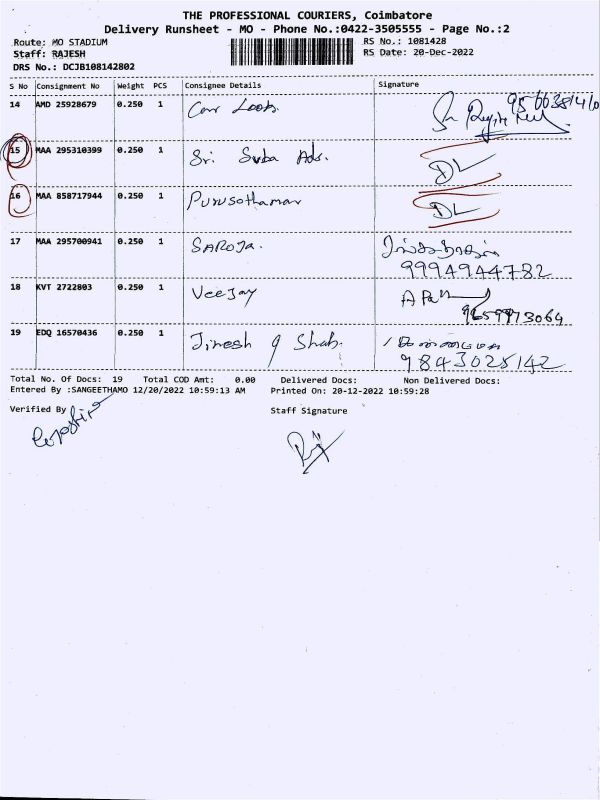 THE PROFESSIONAL COURIERS, Coimbatore
Delivery Runsheet - MO - Phone No.:0422-3505555 - Page No.:2
Route: MO STADIUM RS No.: 1081428
Staff: RAJESH RS Date: 20-Dec-2022
DRS No.: DCJB108142802
S No Consignment No Weight PCS Consignee Details Signature
14 AMD 25928679 0.250 1
15 MAA 295310399 0.250 1 Sri Suba Ads. DL
16 MAA 858717944 0.250 1 Purusothaman DL
17 MAA 295700941 0.250 1 SAROJA.
9994944782
18 KVT 2722803 0.250 1 Veejay
9659973064
19 EDQ 16570436 0.250 1 Jinesh g Shah.
9843025142
Total No. Of Docs: 19 Total COD Amt: 0.00 Delivered Docs: Non Delivered Docs:
Entered By :SANGEETHAMO 12/20/2022 10:59:13 AM Printed On: 20-12-2022 10:59:28
Verified By Staff Signature